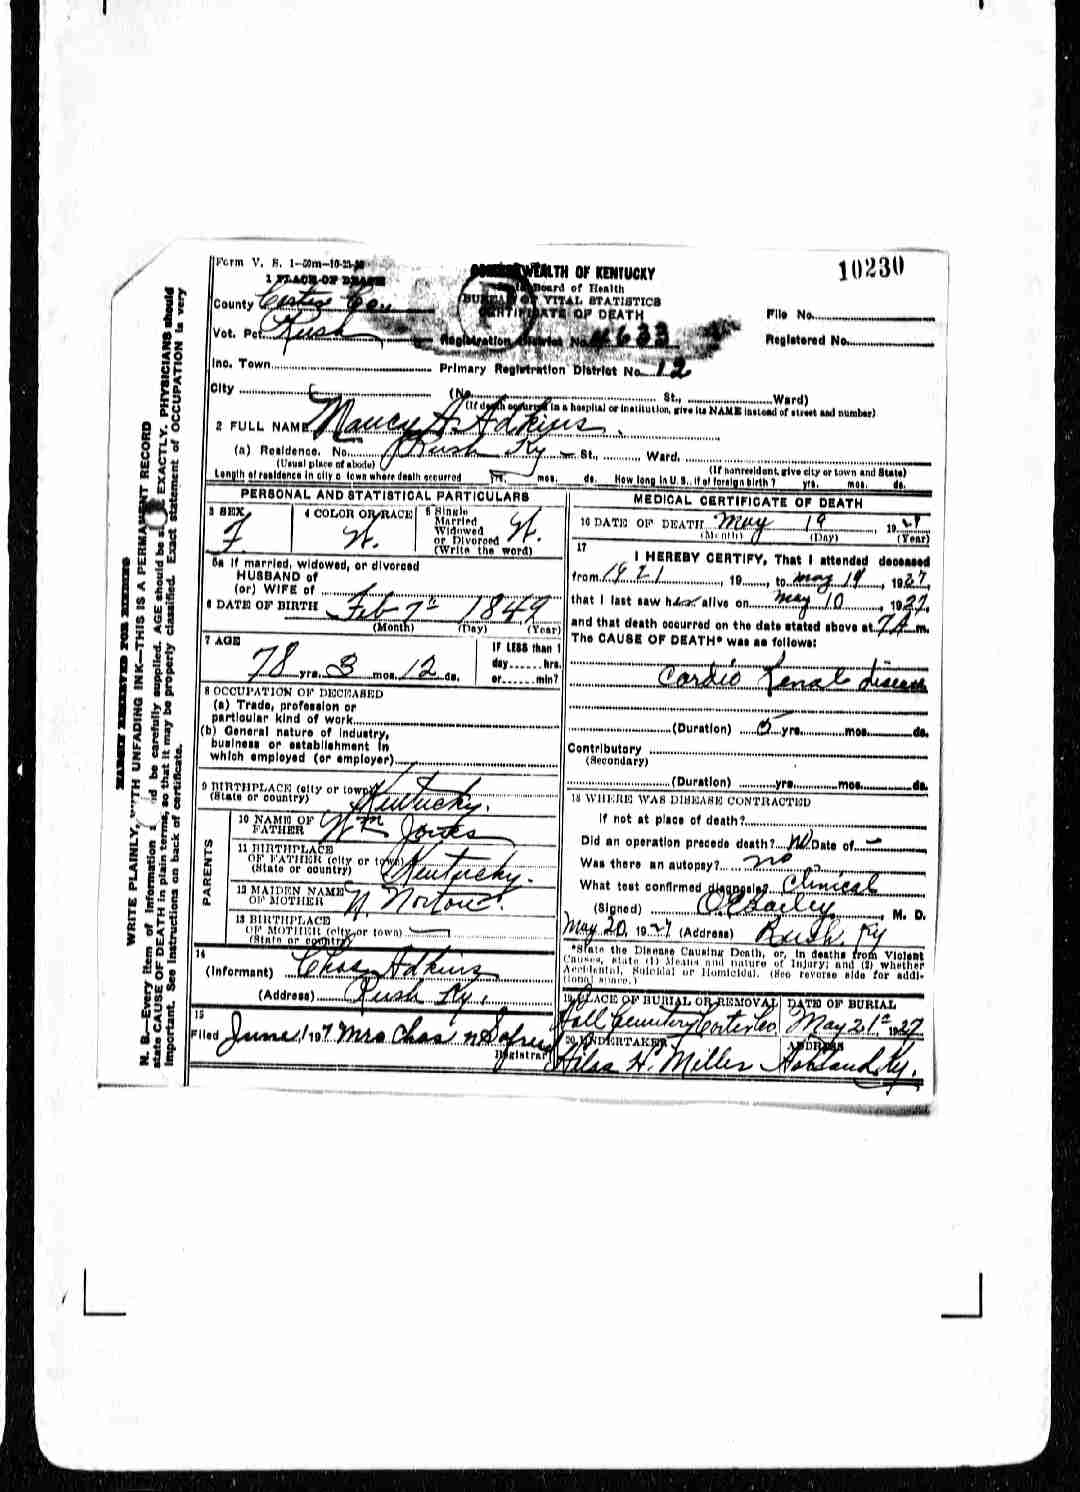 Form V. S. 1-50m-10-23-
COMMONWEALTH OF KENTUCKY
10230
1 PLACE OF DEATH
State Board of Health
BUREAU OF VITAL STATISTICS
County Carter
CERTIFICATE OF DEATH
File No.
Vot. Pct. Rush
Registration District No. 4633
Registered No.
Inc. Town
Primary Registration District No. 12
City (No. St., Ward)
(If death occurred in a hospital or institution, give its NAME instead of street and number)
2 FULL NAME Nancy A. Adkins.
(a) Residence. No. Rush Ky — St., Ward.
(Usual place of abode) (If nonresident, give city or town and State)
Length of residence in city or town where death occurred yrs. mos. ds. How long in U. S., if of foreign birth? yrs. mos. ds.
PERSONAL AND STATISTICAL PARTICULARS
3 SEX F.
4 COLOR OR RACE W.
5 Single
Married
Widowed
or Divorced
(Write the word) W.
5a If married, widowed, or divorced
HUSBAND of
(or) WIFE of
6 DATE OF BIRTH Feb 7th 1849
(Month) (Day) (Year)
7 AGE 78 yrs. 3 mos. 12 ds.
IF LESS than 1
day hrs.
or min?
8 OCCUPATION OF DECEASED
(a) Trade, profession or
particular kind of work
(b) General nature of industry,
business or establishment in
which employed (or employer)
9 BIRTHPLACE (city or town)
(State or country) Kentucky.
PARENTS
10 NAME OF
FATHER Wm Jones
11 BIRTHPLACE
OF FATHER (city or town)
(State or country) Kentucky.
12 MAIDEN NAME
OF MOTHER N. Norton.
13 BIRTHPLACE
OF MOTHER (city or town) —
(State or country)
14
(Informant) Chas Adkins
(Address) Rush Ky.
15
Filed June 1 197 Mrs Chas N
Registrar
MEDICAL CERTIFICATE OF DEATH
16 DATE OF DEATH May 19 1927
(Month) (Day) (Year)
17
I HEREBY CERTIFY, That I attended deceased
from 1921, 19, to May 19, 1927,
that I last saw her alive on May 10, 1927,
and that death occurred on the date stated above at 7A m.
The CAUSE OF DEATH* was as follows:
Cardio Renal disease
(Duration) 5 yrs. mos. ds.
Contributory
(Secondary)
(Duration) yrs. mos. ds.
18 WHERE WAS DISEASE CONTRACTED
If not at place of death?
Did an operation precede death? No Date of —
Was there an autopsy? no
What test confirmed diagnosis? Clinical
(Signed) Bailey, M. D.
May 20, 1927 (Address) Rush, Ky
*State the Disease Causing Death, or, in deaths from Violent
Causes, state (1) Means and nature of Injury; and (2) whether
Accidental, Suicidal or Homicidal. (See reverse side for addi-
tional space.)
19 PLACE OF BURIAL OR REMOVAL DATE OF BURIAL
Hall Cemetery Carter Co. May 21st 1927
20 UNDERTAKER ADDRESS
H. Miller Ashland, Ky.
MARGIN RESERVED FOR BINDING
WRITE PLAINLY, WITH UNFADING INK—THIS IS A PERMANENT RECORD
N. B.—Every item of information should be carefully supplied. AGE should be stated EXACTLY. PHYSICIANS should
state CAUSE OF DEATH in plain terms, so that it may be properly classified. Exact statement of OCCUPATION is very
important. See instructions on back of certificate.